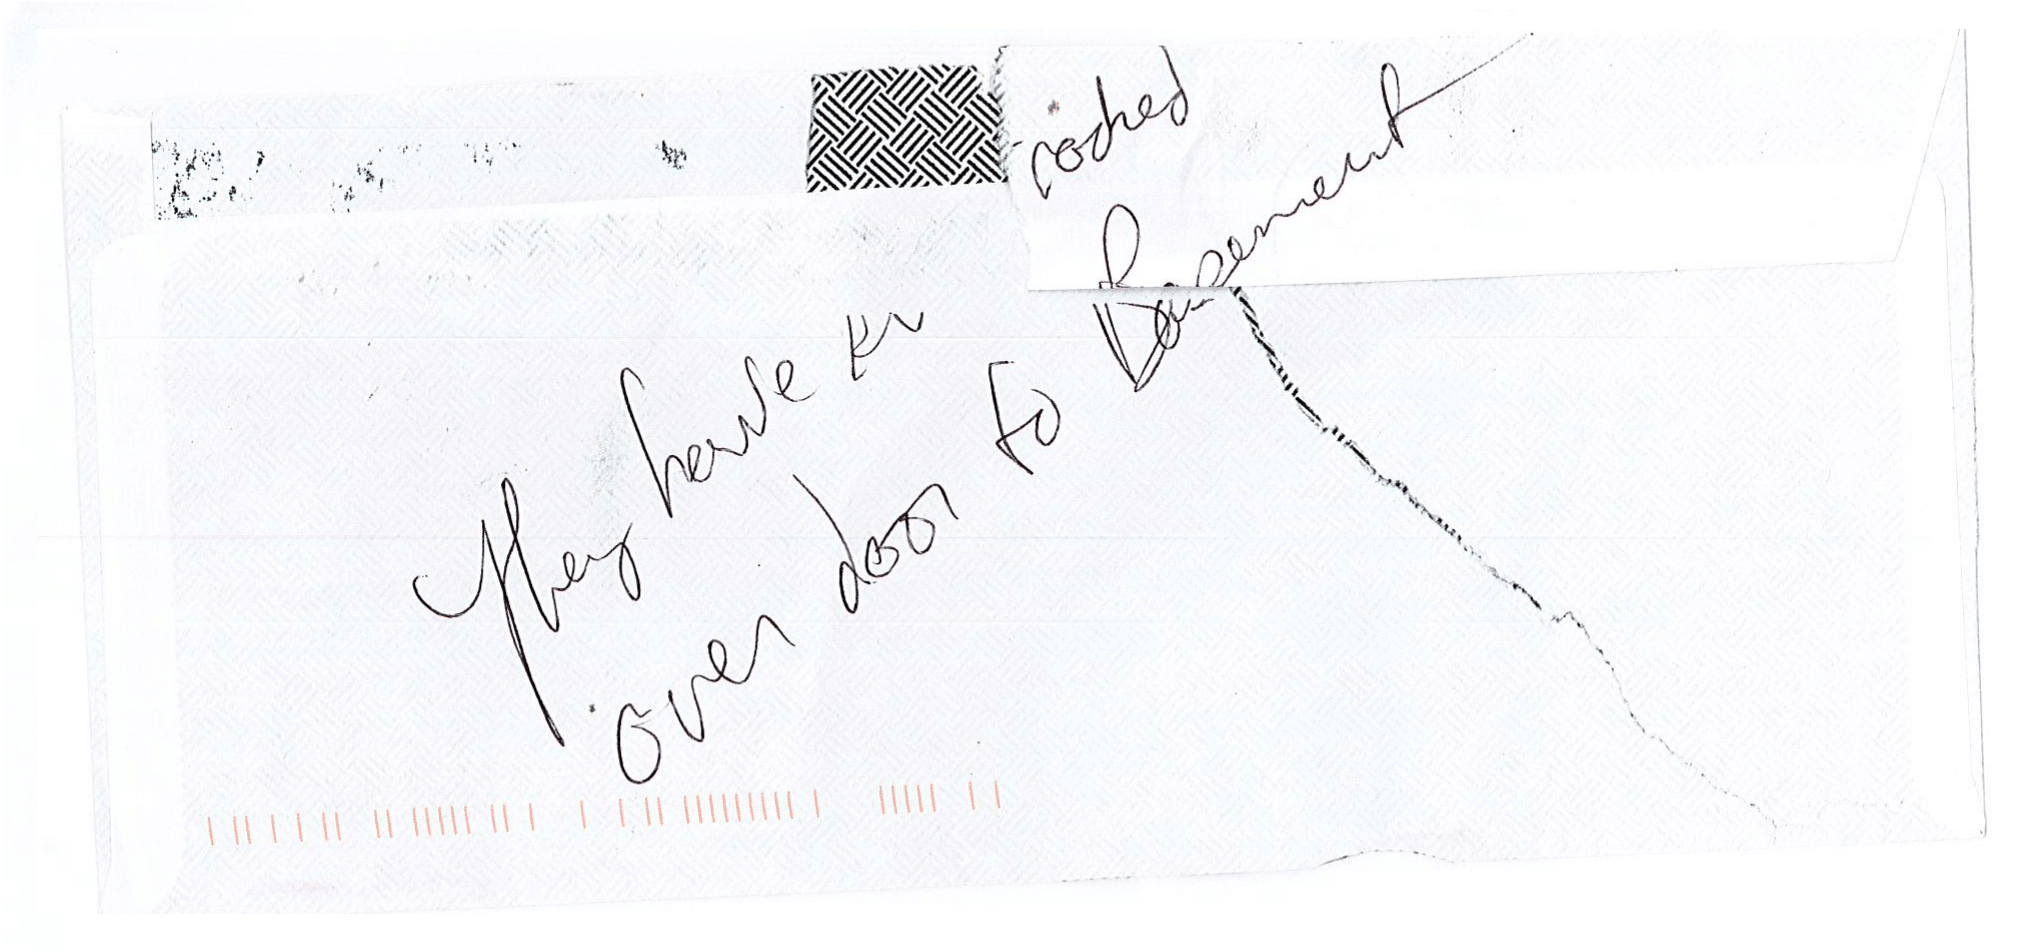 They have Knocked
over door to Basement